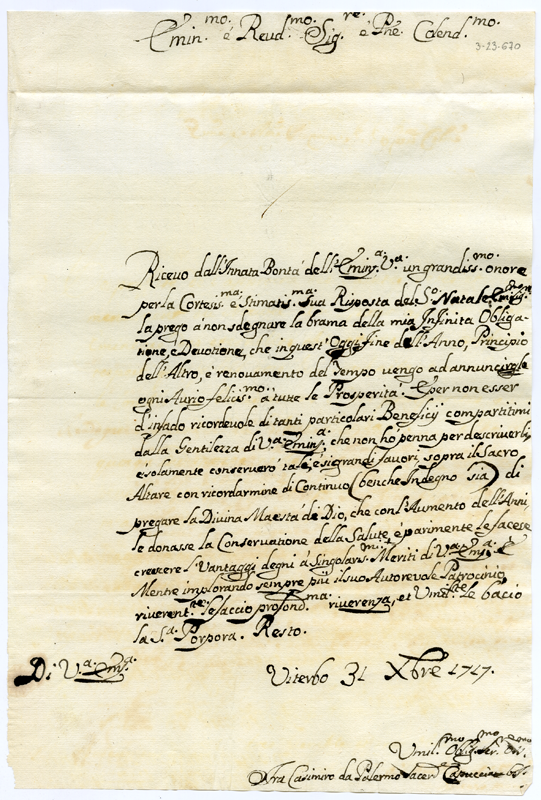 Emin.mo é Reud.mo Sig.re é Pñe Colend.mo
3-23-670
Riceuo dall'Innata Bontá dell'Emin.a V.a un grandiss.mo onore
per la Cortesis.ma e Stimatis.ma Sua Risposta del S.o Natale,
la prego á non sdegnare la brama della mia Infinita Obliga-
tione, e Deuotione, che in quest'Oggi fine dell'Anno, Principio
dell'Altro, é renouamento del Tempo uengo ad annunciarle
ogni Aurio felicis.mo a tutte le Prosperita. E per non esser
ricordeuole di tanti particolari Beneficij compartitimi
dalla Gentilezza di V.a Emin.a, che non ho penna per descriuerli,
é solamente conserueró tali, é sì grandi fauori, sopra il Sacro
Altare con ricordarmine di Continuo (benche Indegno sia) di
pregare la Diuina Maestá de Dio, che con l'Aumento dell'Anni,
le donasse la Conseruatione della Salute, é parimente le facesse
crescere l'Vantaggi degni á Singolaris.mi Meriti di V.a Em.a E
Mentre implorando sempre più il suo Autoreuole Patrocinio,
riuerent.te le faccio profond.ma riuerenza, et Umil.te le bacio
la S.a Porpora. Resto.
Di V.a Em.a
Viterbo 31 Xbre 1717.
Umil.mo Oblig.mo Ser.
Fra Casimiro da Palermo Sacer.e Capuccino